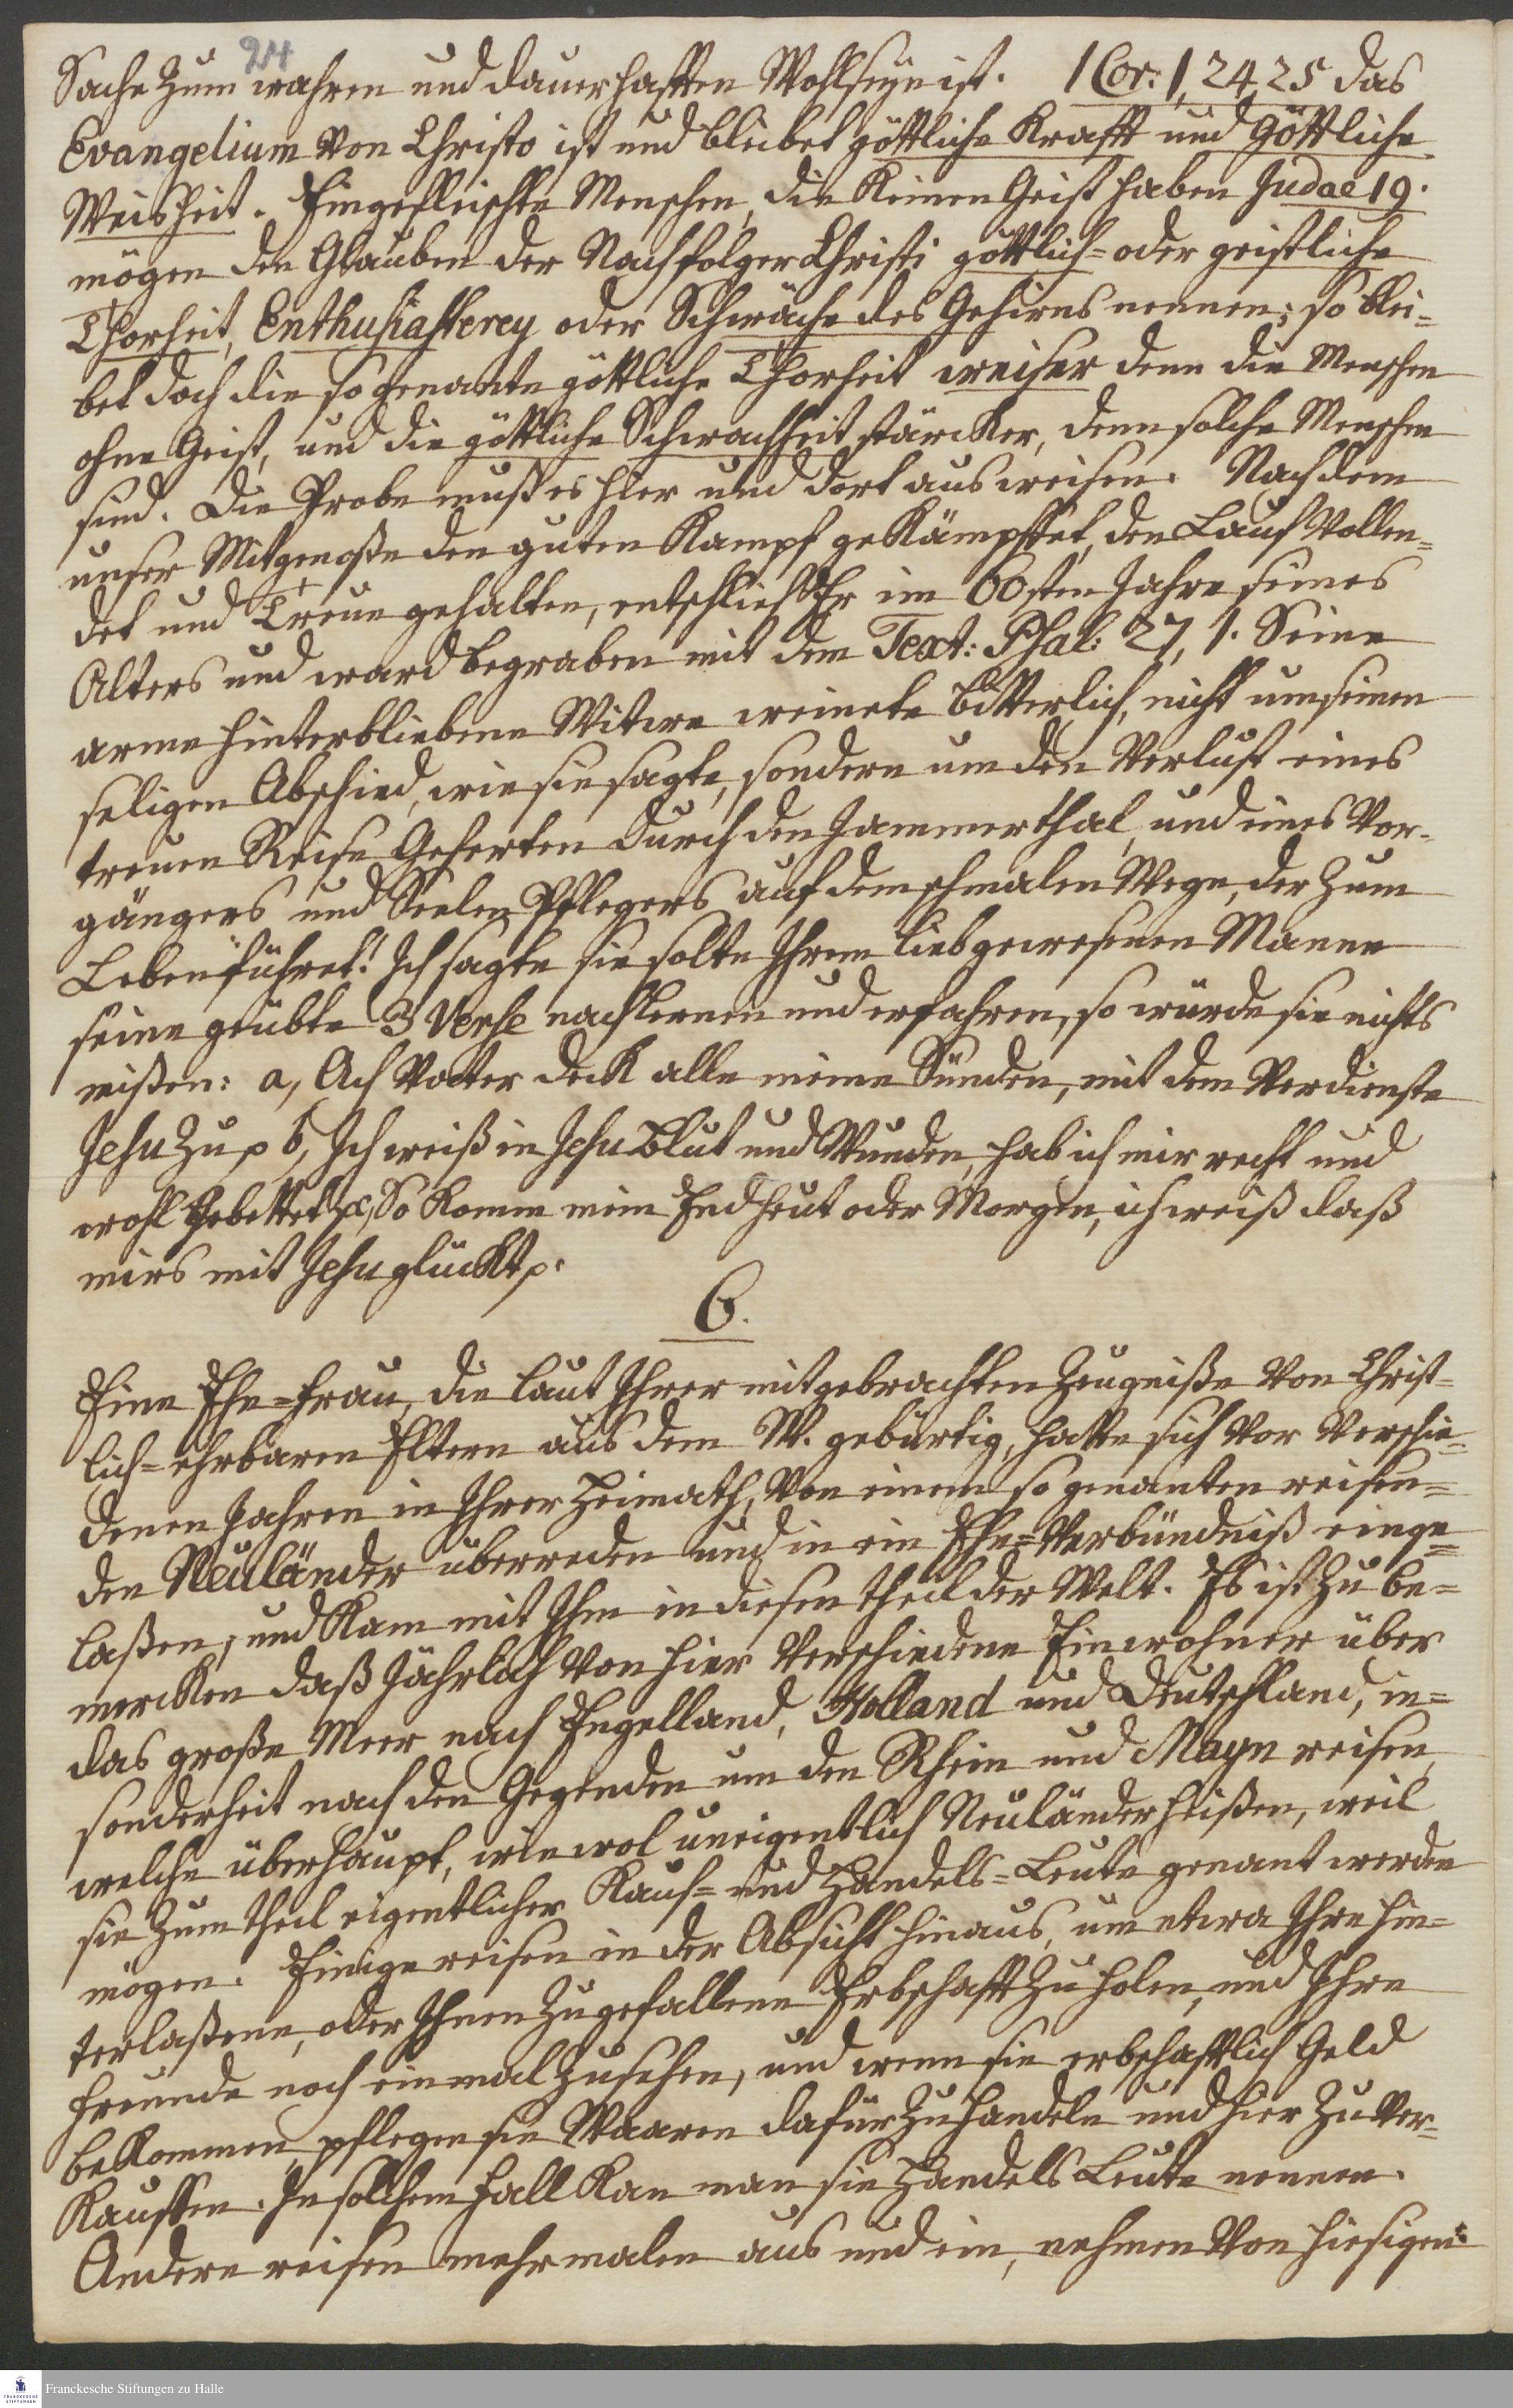 24
Sache zum wahren und dauerhafften Wohlseyn ist. 1 Cor: 1, 24, 25 das
Evangelium von Christo ist und bleibet göttliche Krafft und Göttliche
Weisheit. Eingefleischte Menschen, die keinen Geist haben Judae 19.
mögen den Glauben der Nachfolger Christi göttlich= oder geistliche
Thorheit, Enthusiasterey oder Schwäche des Gehirns nennen; so blei=
bet doch die so genante göttliche Thorheit weiser denn die Menschen
ohne Geist, und die göttliche Schwachheit stärcker, denn solche Menschen
sind. Die Probe muß es hier und dort ausweisen. Nachdem
unser Mitgenoße den guten Kampf gekämpffet, den Lauf vollen=
det und Treue gehalten, entschlief Er im 60sten Jahre seines
Alters und ward begraben mit dem Text: Psal: 27, 1. Seine
arme hinterbliebene Witwe weinete bitterlich, nicht um seinen
seligen Abschied, wie sie sagte, sondern um den Verlust eines
treuen Reise Geferten durch den Jammerthal, und eines Vor=
gängers und Seelen Pflegers auf dem schmalen Wege, der zum
Leben führet! Ich sagte sie solte Ihrem liebgewesenen Manne
seine geübte 3 Verse nachlernen und erfahren, so würde sie nichts
mißen: a, Ach Vater deck alle meine Sünden, mit dem Verdienste
Jesu zu p b, Ich weiß in Jesu Blut und Wunden, hab ich mir recht und
wohl Gebettet p c, So komm mein End heut oder Morgen, ich weiß daß
mirs mit Jesu glückt p.
6.
Eine Ehe=Frau, die laut Ihrer mitgebrachten Zeugniße von Christ=
lich=ehrbaren Eltern aus dem W. gebürtig, hatte sich vor verschie=
denen Jahren in Ihrer Heimath, von einem so genanten reisen=
den Neuländer überreden und in ein Ehe=Verbündniß einge=
laßen, und kam mit Ihm in diesen theil der Welt. Es ist zu be=
mercken daß Jährlich von hier verschiedene Einwohner über
das große Meer nach Engelland, Holland und Deutschland, in=
sonderheit nach den Gegenden um den Rhein und Mayn reisen,
welche überhaupt, wiewol uneigentlich Neuländer heißen, weil
sie zum theil eigentlicher Kauf= und Handels=Leute genant werden
mögen. Einige reisen in der Absicht hinaus, um etwa Ihre hin=
terlaßene, oder Ihnen zugefallene Erbschafft zu holen, und Ihre
Freunde noch einmal zu sehen, und wenn sie erbschafftlich Geld
bekommen, pflegen sie Waaren dafür zu handeln und hier zu ver=
kauffen. In solchem Fall kan man sie Handels Leute nennen.
Andere reisen mehrmalen aus und ein, nehmen von hiesigen
Franckesche Stiftungen zu Halle